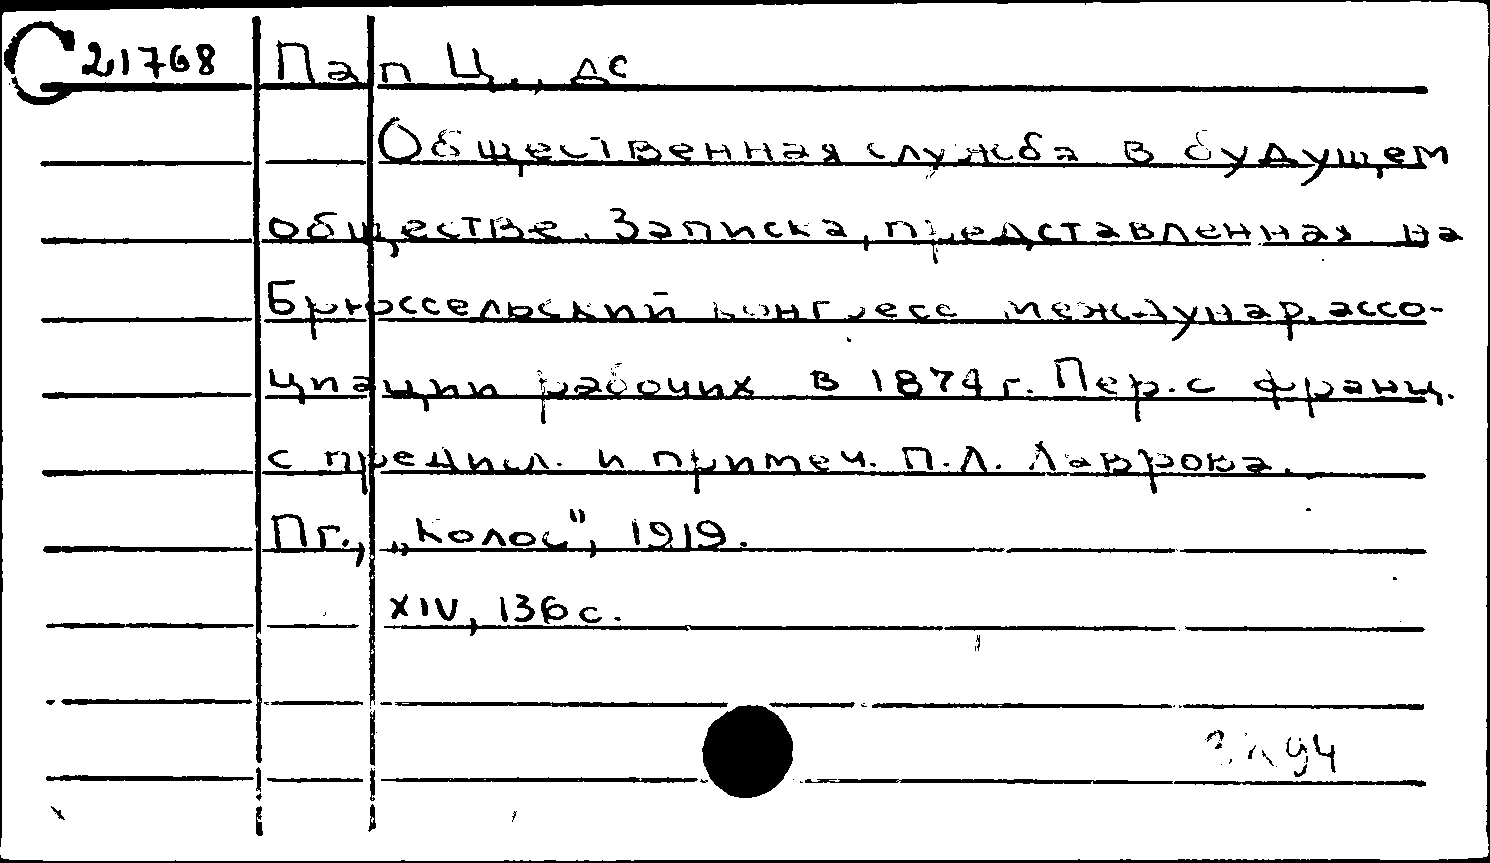 С 21768 Пап Ц., де
Общественная служба в будущем
обществе. Записка, представленная на
Брюссельский конгресс междунар. ассо-
циации рабочих в 1874 г. Пер. с франц.
с предисл. и примеч. П.Л. Лаврова.
Пг., „Колос", 1919.
XIV, 136 с.
94